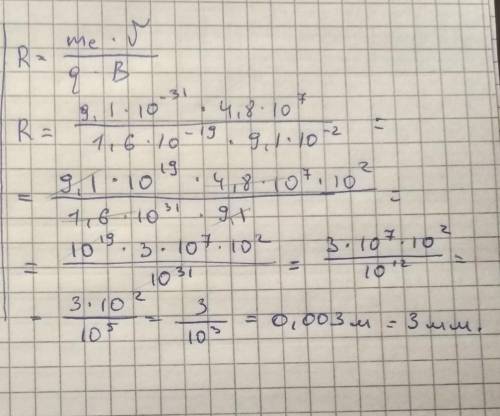 R = me · V / q · B
R = 9,1 · 10⁻³¹ · 4,8 · 10⁷ / 1,6 · 10⁻¹⁹ · 9,1 · 10⁻² =
= 9,1 · 10¹⁹ · 4,8 · 10⁷ · 10² / 1,6 · 10³¹ · 9,1 =
= 10¹⁹ · 3 · 10⁷ · 10² / 10³¹ = 3 · 10⁷ · 10² / 10¹² =
= 3 · 10² / 10⁵ = 3 / 10³ = 0,003 м = 3 мм.